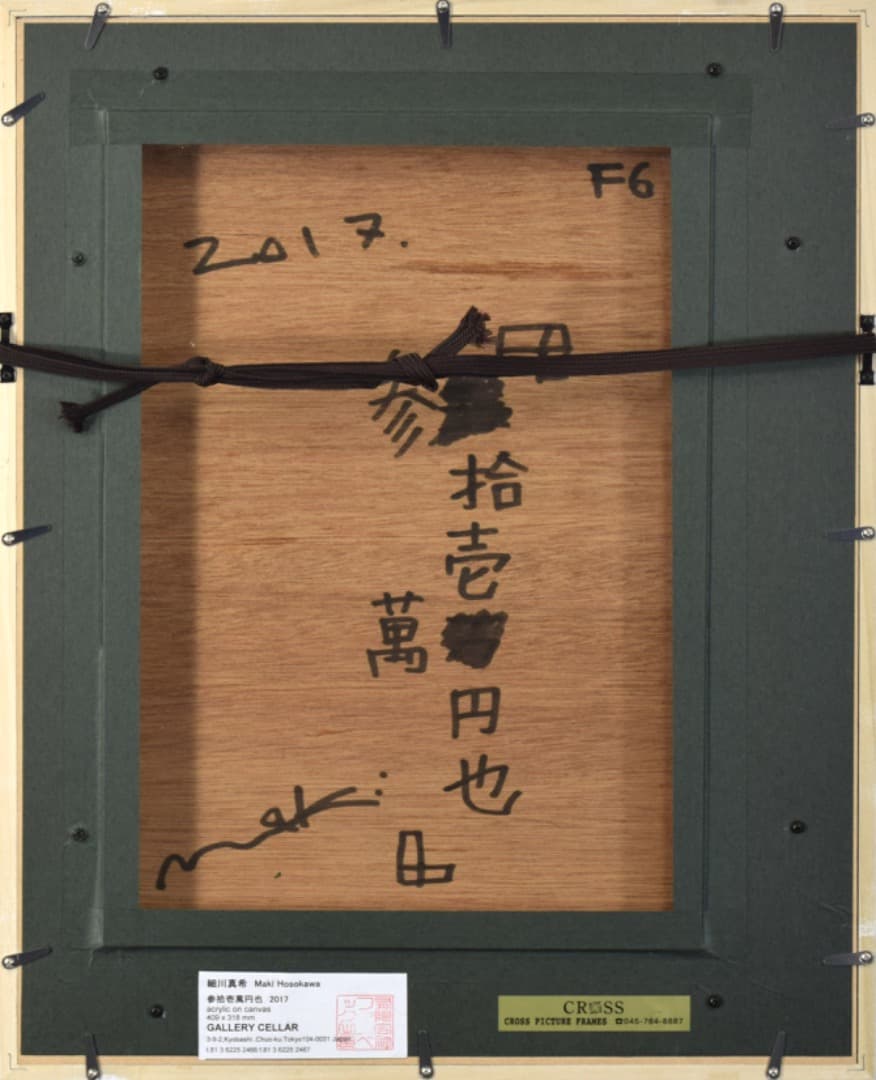 F6
2017.
『参拾壱萬円也』
Maki
細川真希 Maki Hosokawa
参拾壱萬円也 2017
acrylic on canvas
409 x 318 mm
GALLERY CELLAR
3-9-2,Kyobashi,,Chuo-ku,Tokyo104-0031 Japan
t.81 3 6225 2466 f.81 3 6225 2467
CROSS
CROSS PICTURE FRAMES ☎045-784-8687